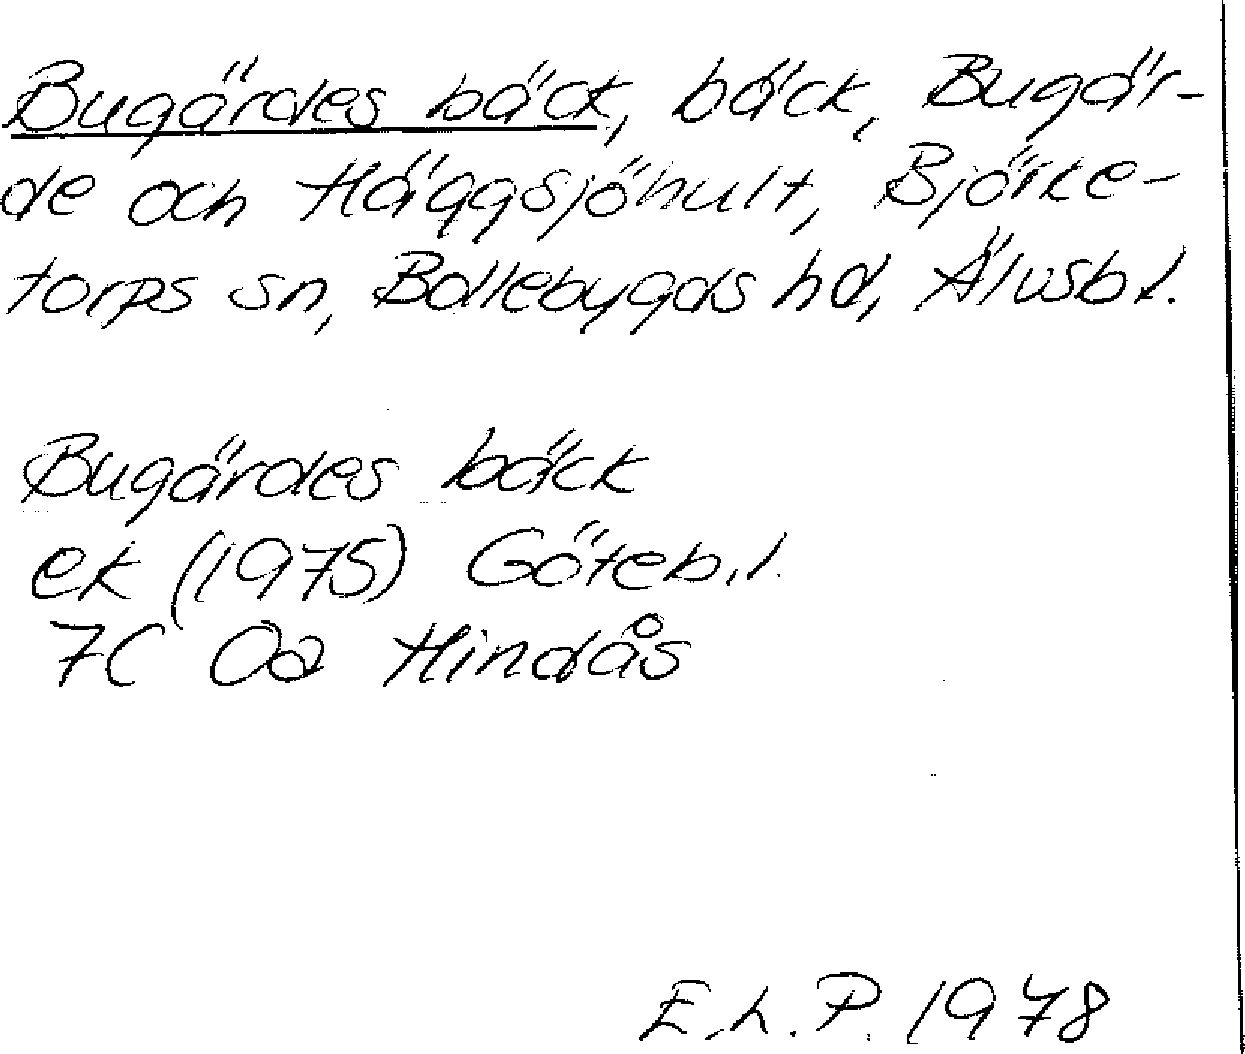 Bugärdes bäck, bäck, Bugär-
de och Häggsjöhult, Björke-
torps sn, Bollebygds hd, Älvsb l.
Bugärdes bäck
ek (1975) Göteb. l.
7C 0a Hindås
E. L. P. 1978